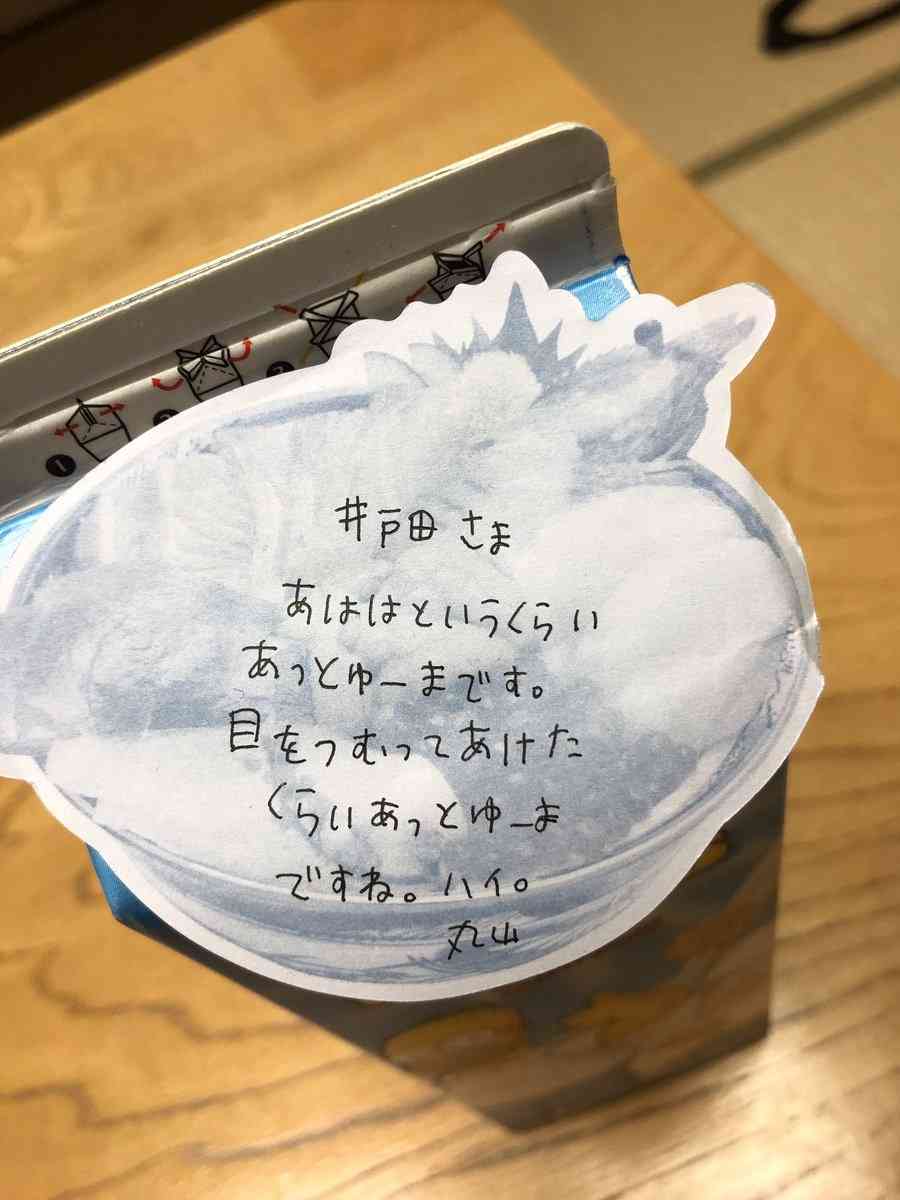 井戸田 さま
あははというくらい
あっとゆーまです。
目をつむってあけた
くらいあっとゆーま
ですね。ハイ。
丸山
1
2